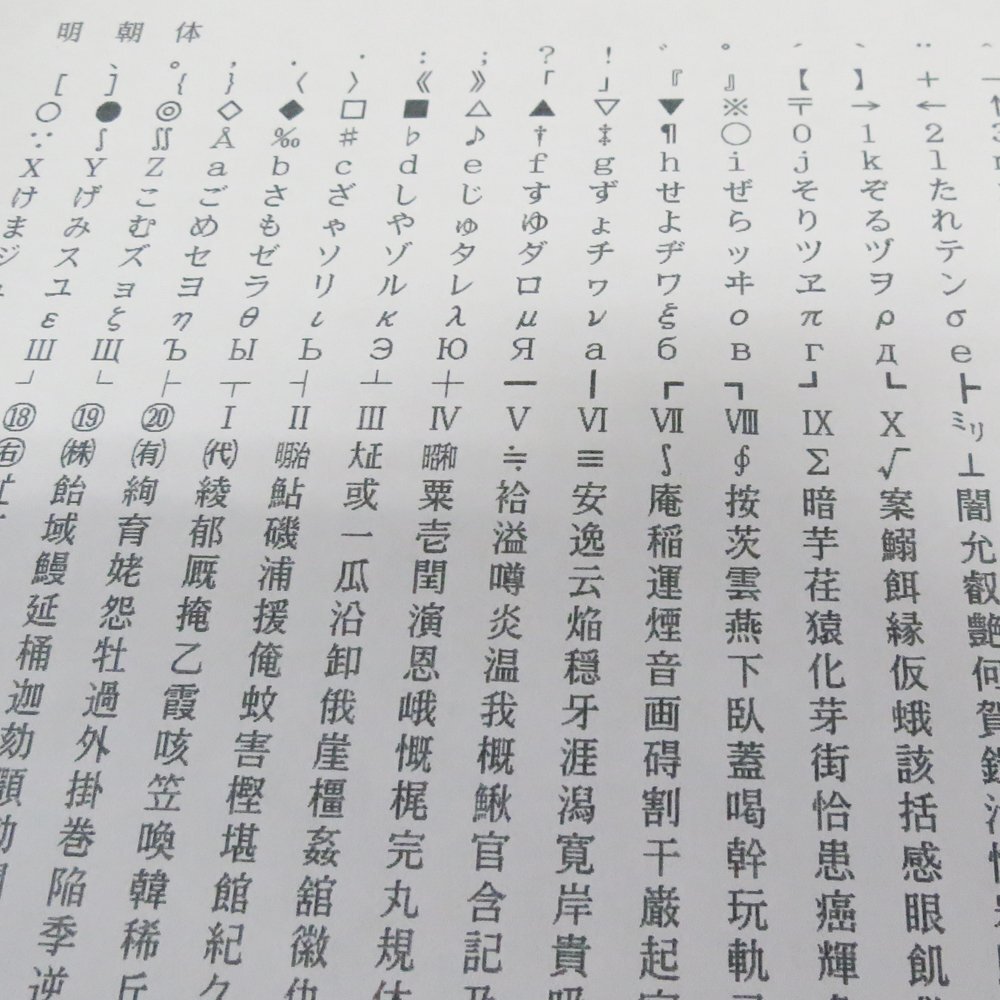 明朝体
、。，．・：；？！゛゜´｀¨
［］｛｝〈〉《》「」『』【】＋
○●◎◇◆□■△▲▽▼※〒→←↑
∵∫∬Å‰♯♭♪†‡¶◯０１２３
ＸＹＺａｂｃｄｅｆｇｈｉｊｋｌ
けげこごさざしじすずせぜそぞた
まみむめもゃやゅゆょよらりるれ
ジスズセゼソゾタダチヂッツヅテ
ユョヨラリルレロヮワヰヱヲン
εζηθικλμνξοπρσ
ШЩЪЫЬЭЮЯабвгде
┘└├┬┤┴┼━┃┏┓┛┗┣
⑱⑲⑳ⅠⅡⅢⅣⅤⅥⅦⅧⅨⅩ㍉
㊨㈱㈲㈹㍾㍽㍼≒≡∫∮Σ√⊥
飴絢綾鮎或粟袷安庵按暗案闇
域育郁磯一壱溢逸稲茨芋鰯允
鰻姥厩浦瓜閏噂云運雲荏餌叡
延怨掩援沿演炎焔煙燕猿縁艶
桶牡乙俺卸恩温穏音下化仮何
迦過霞蚊俄峨我牙画臥芽蛾賀
劾外咳害崖慨概涯碍蓋街該鎧
顎掛笠樫橿梶鰍潟割喝恰括活
勘巻喚堪姦完官寛干幹患感
陥韓館舘丸含岸巌玩癌眼
季稀紀徽規記貴起軌輝飢
逆丘久仇休及吸